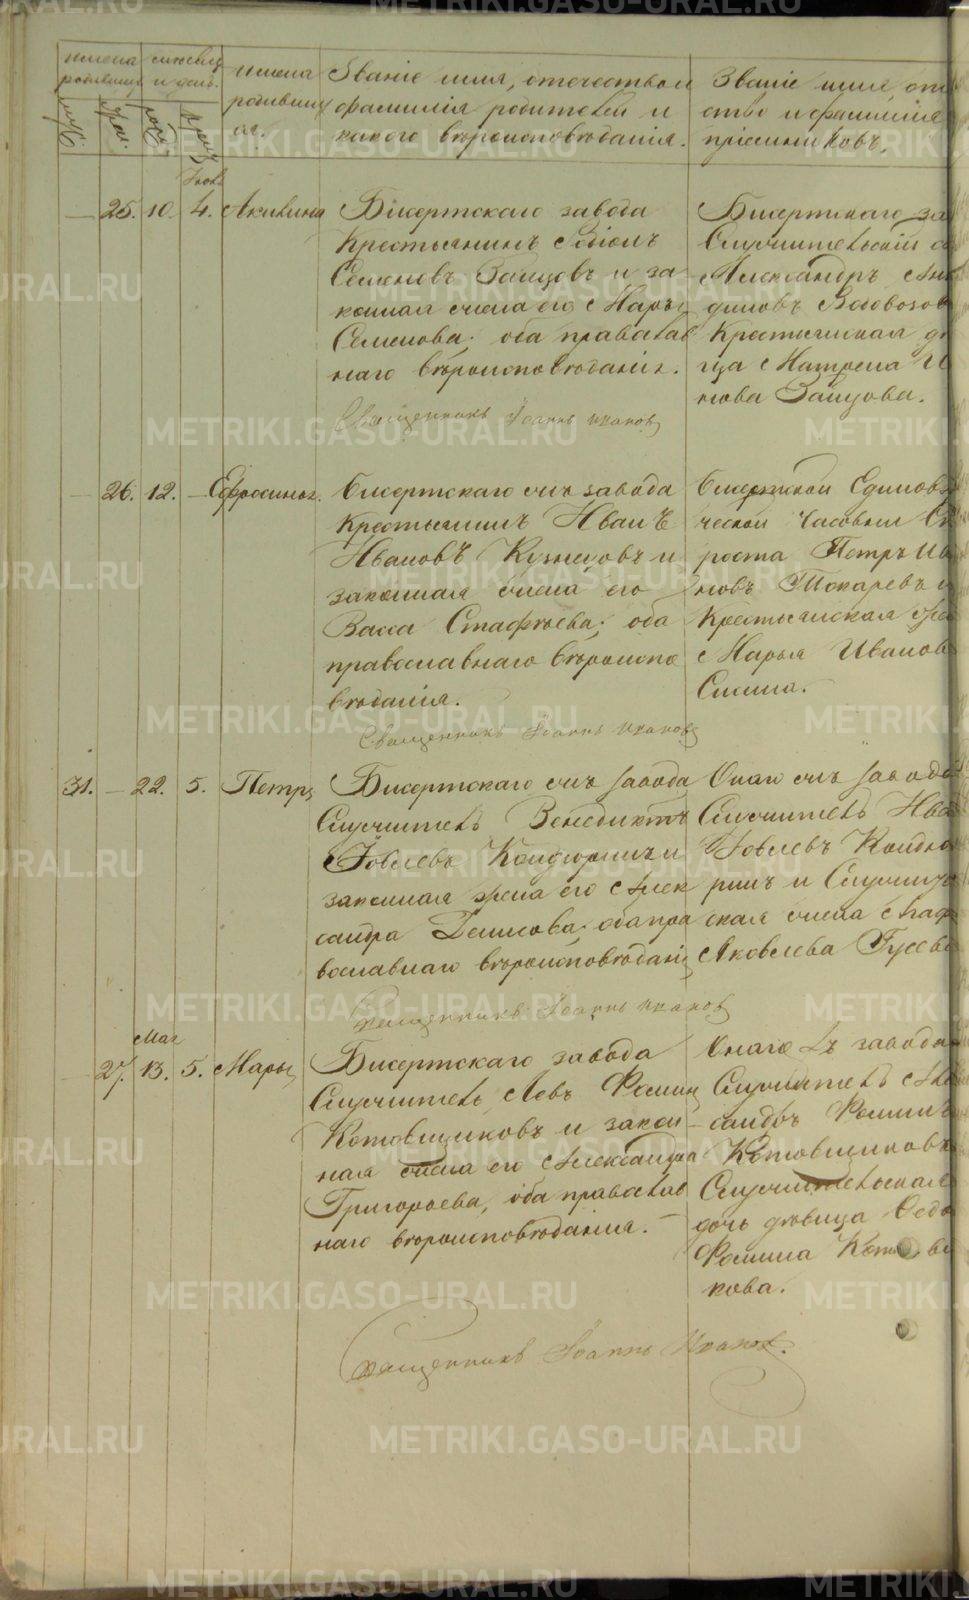 имена
родивших
муж.
жен.
месяц
и день
имена
родивших
ся.
Званіе имя, отечество и
фамилія родителей и
какого вѣроисповѣданія.
Званіе имя, оте
ство и фамилія
пріемниковъ.
25. 10. 4. Акилина
Бисертскаго завода
Крестьянинъ Родіонъ
Семеновъ Зайцовъ и за
конная жена его Марья
Семенова; оба православ
наго вѣроисповѣданія.
Священникъ Іоаннъ Ивановъ
Бисертскаго за
Служительскій
Александръ
диновъ
Крестьянская дѣ
ица Матрена И
нова Зайцова.
26. 12. — Ефросинья.
Бисертскаго онъ завода
Крестьянинъ Иванъ
Ивановъ Кузнецовъ и
законная жена его
Васса Стафѣева; оба
православнаго вѣроиспо
вѣданія.
Священникъ Іоаннъ Ивановъ
Бисертской Единовѣ
ческой Часовни Ст
роста Петръ Ив
новъ Токаревъ и
Крестьянская жена
Марья Иванов
Сисина.
31. — 22. 5. Петръ
Бисертскаго онъ завода
Служитель Венедиктъ
Іовлевъ Кондюринъ и
законная жена его Алек
сандра Денисова; оба пра
вославнаго вѣроисповѣданія
Священникъ Іоаннъ Ивановъ
Онаго онъ завода
Служитель Ива
Іовлевъ Кондю
ринъ и Служитель
ская жена Агаф
Яковлева Гусева
Мая
27. 13. 5. Марья
Бисертскаго завода
Служитель Левъ Фомин
Котовщиковъ и закон
ная жена его Александра
Григорьева, оба православ
наго вѣроисповѣданія. —
Онаго завода
Служитель Але
сандръ Фоминъ
Котовщиковъ
Служительская
дочь дѣвица Ѳедо
Фомина
кова.
Священникъ Іоаннъ Ивановъ.
METRIKI.GASO-URAL.RU